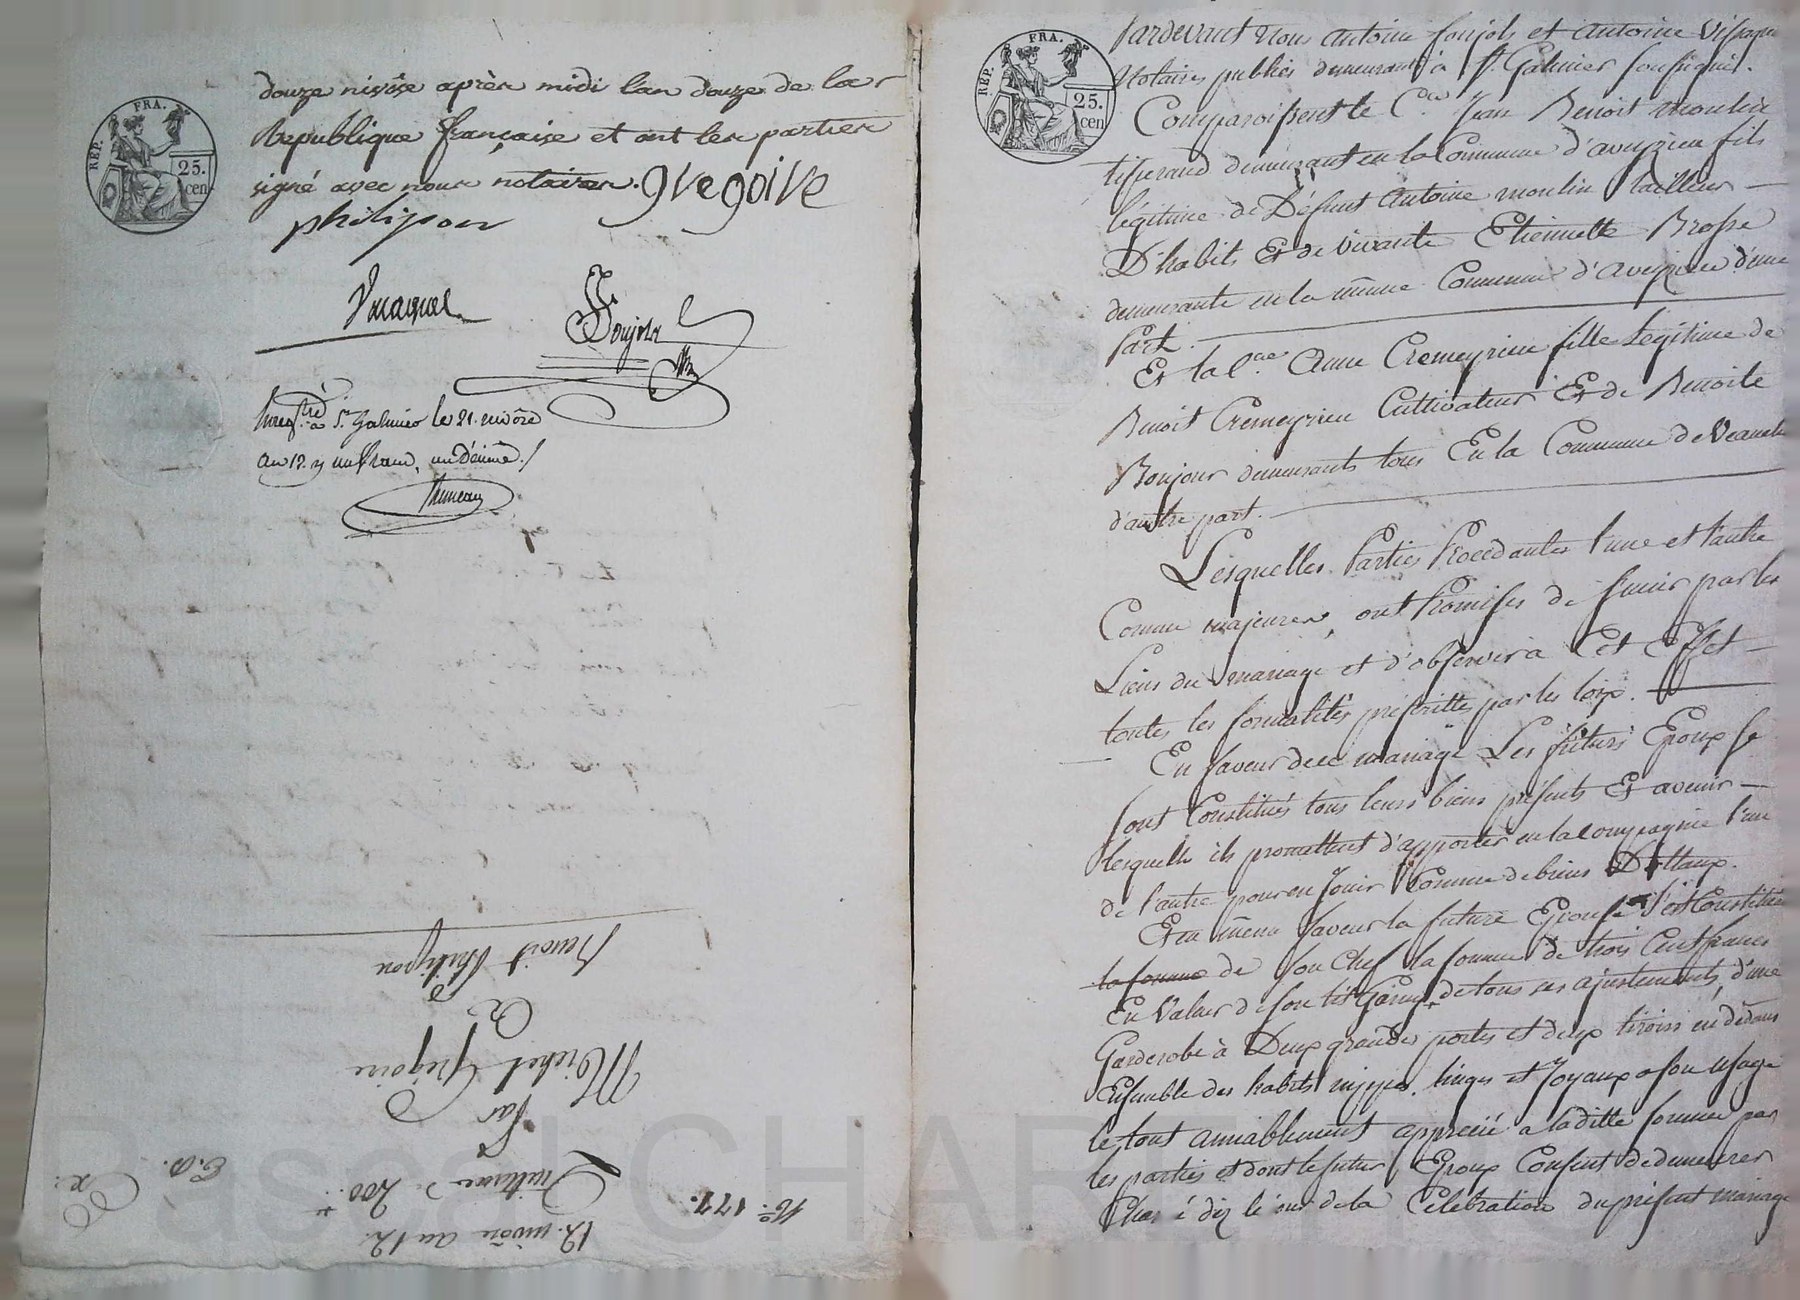 REP. FRA.
25.
cen
douze nivôse après midi l'an douze de la
Republique française et ont les parties
signé avec nous notaires. gregoire
philipon
Foujols
Enreg.tré à St. Galmier le 21. nivôse
an 12. un franc, un décime./
REP. FRA.
25.
cen
Pardevant Nous Antoine foujols et Antoine
Notaires publics demeurant à St. Galmier soussignés.
Comparoissent le C.en Jean Benoit moulin
tisserand demeurant en la Commune d'aveyzieu fils
légitime de Défunt Antoine moulin tailleur
D'habits Et de vivante Etiennette Brosse
demeurante en la même Commune d'aveyzieu d'une
Part.
Et la C.ne Anne Cremeyrieu fille Légitime de
Benoit Cremeyrieu Cultivateur Et de Benoite
Bonjour demeurants tous En la Commune de Veauche
d'autre part.
Lesquelles Parties Procedantes l'une et l'autre
Comme majeures, ont Promises de s'unir par les
Liens du mariage et d'observer à Cet Effet
toutes les formalités prescrittes par les loix.
En faveur de ce mariage Les futurs Epoux se
sont Constitués tous leurs biens présents Et avenir
lesquels ils promettent d'apporter en la compagnie l'un
de l'autre pour en Jouir Comme de biens Dottaux.
Et en même faveur la future Epouse s'est Constitué
la somme de son Chef la somme de trois Cent francs
En Valeur de son lit Garny de tous ses ajustements, d'une
Garderobe à Deux grandes portes et deux tiroirs en dedans
Ensemble des habits nippes, linges et Joyaux a son usage
le tout amiablement apprécié a laditte somme par
les parties et dont le futur Epoux Consent de demeurer
Chargé dèz le jour de la Célébration du présent mariage
N.o 177.
12. nivôse an 12.
Quittance de 200.
Par
Michel Grégoire
à
Benoit Philipon
E. D.
Pascal CHAR